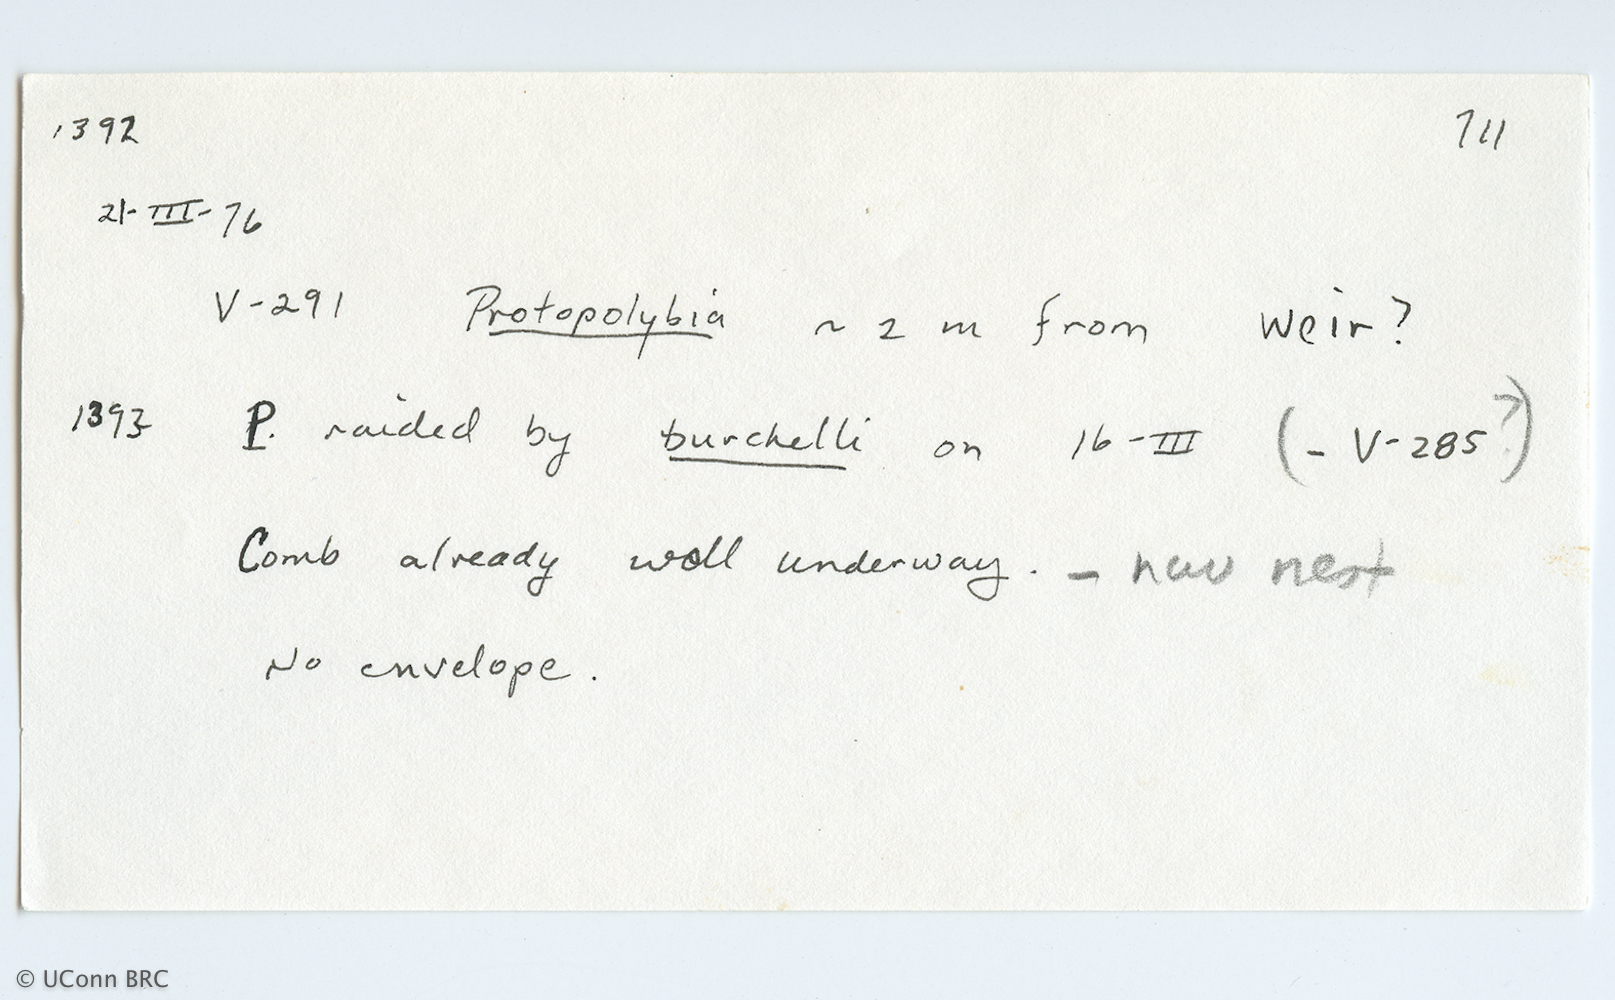 1392 711
21-III-76
V-291 Protopolybia ~ 2 m from weir?
1393 P. raided by burchelli on 16-III (- V-285?)
Comb already well underway. - new nest
No envelope.
© UConn BRC